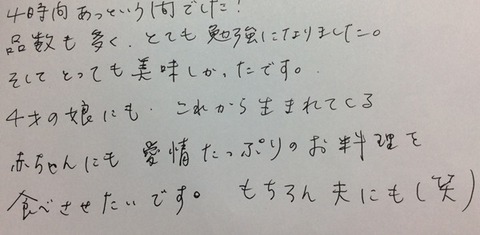 4時間あっという間でした!
品数も多く、とても勉強になりました。
そしてとっても美味しかったです。
4才の娘にも、これから生まれてくる
赤ちゃんにも愛情たっぷりのお料理を
食べさせたいです。もちろん夫にも(笑)